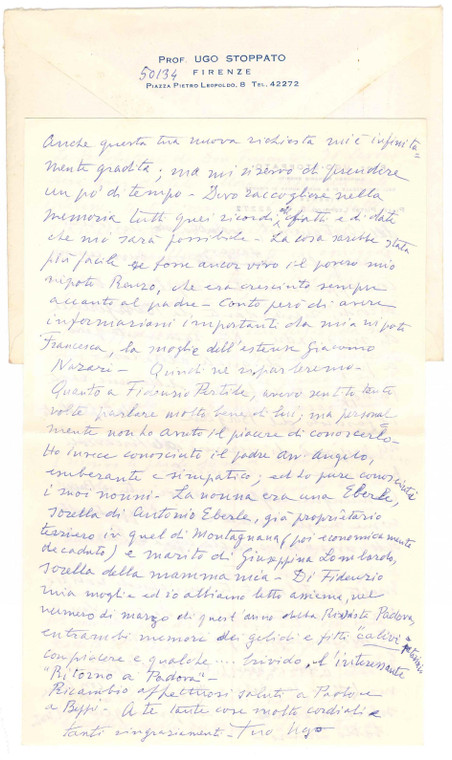 PROF. UGO STOPPATO
50134 FIRENZE
PIAZZA PIETRO LEOPOLDO, 8 TEL. 42272
Anche questa tua nuova richiesta mi è infinita=
mente gradita; ma mi riservo di prendere
un po' di tempo - Devo raccogliere nella
memoria tutti quei ricordi di fatti e di date
che mi sarà possibile - La cosa sarebbe stata
più facile se fosse ancor vivo il povero mio
nipote Renzo, che era cresciuto sempre
accanto al padre - Conto però di avere
informazioni importanti da mia nipote
Francesca, la moglie dell'estense Giacomo
Nazari - Quindi ne riparleremo -
Quanto a Fidenzio Pertile, avevo sentito tante
volte parlare molto bene di lui; ma personal
mente non ho avuto il piacere di conoscerlo -
Ho invece conosciuto il padre avv. Angelo,
esuberante e simpatico; ed ho pure conosciuti
i suoi nonni - La nonna era una Eberle,
sorella di Antonio Eberle, già proprietario
terriero in quel di Montagnana (poi economicamente
decaduto) e marito di Giuseppina Lombardo,
sorella della mamma mia - Di Fidenzio
mia moglie ed io abbiamo letto assieme, nel
numero di marzo di quest'anno della Rivista Padova,
entrambi memore dei gelidi e fitti "calivi"
con piacere e qualche .... brivido, l'interessante
"Ritorno a Padova" -
Ricambio affettuosi saluti a Paolo e
a Beppi - A te tante cose molto cordiali e
tanti ringraziamenti - Tuo Ugo